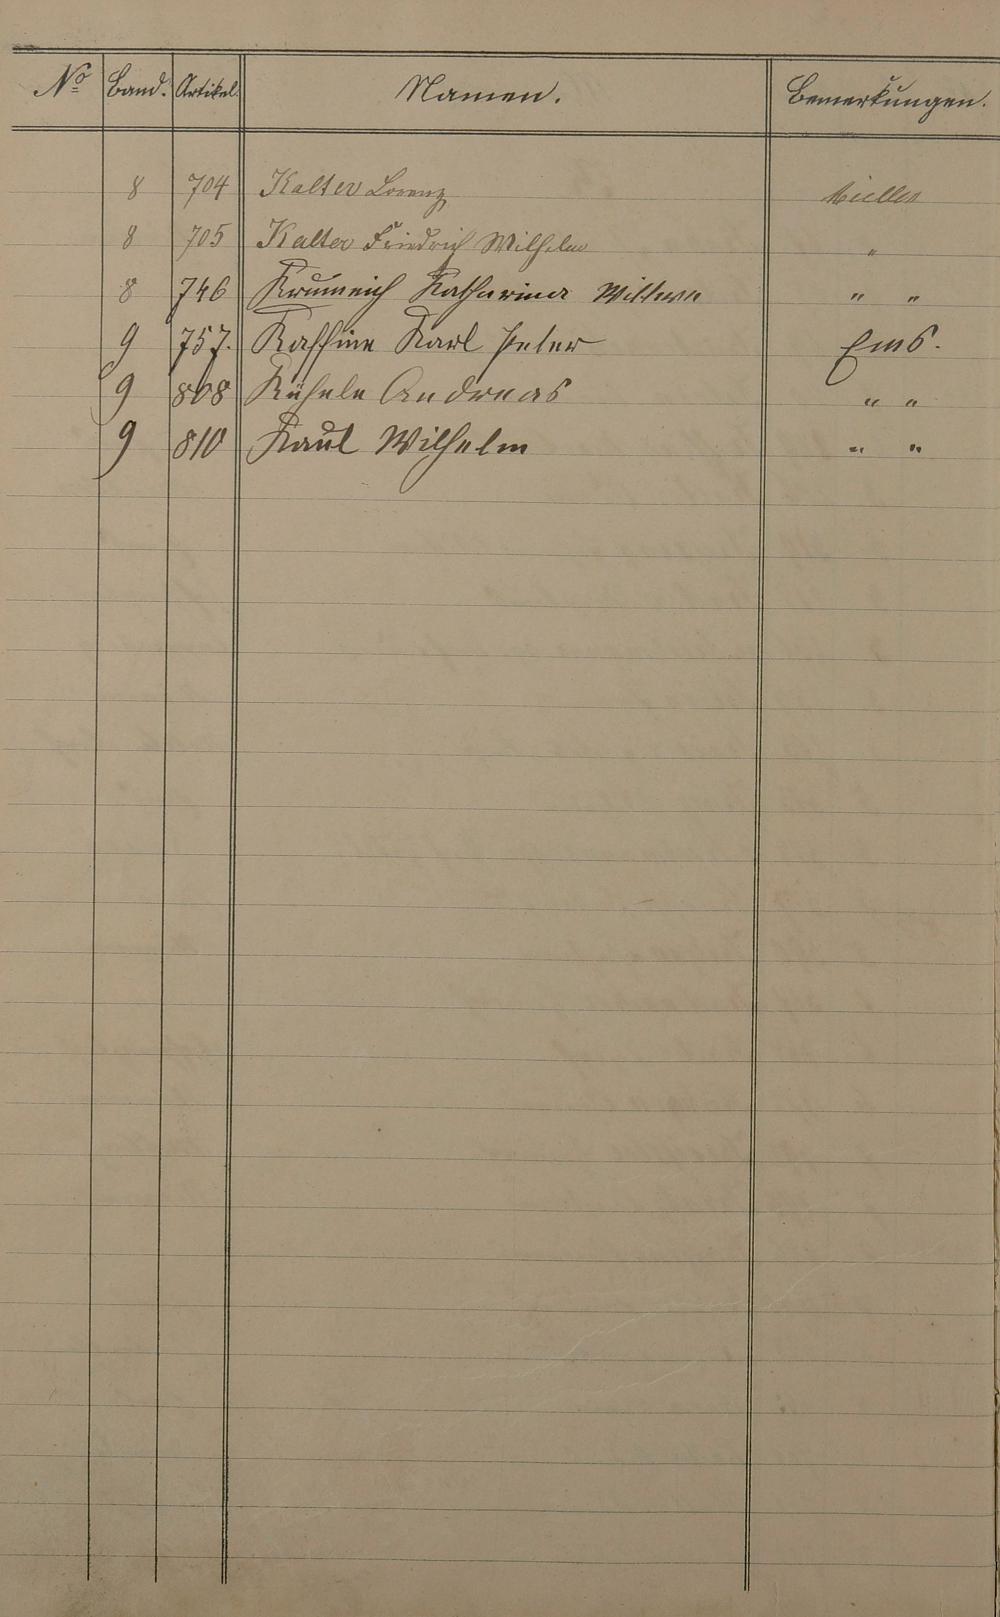 No Band. Artikel. Namen. Bemerkungen.
8 704 Kalter Lorenz
8 705 Kalter Friedrich Wilhelm "
8 746 Krumeich Katharina Wittwe " "
9 757. Karl Peter Ems.
9 808 Andreas " "
9 810 Kaul Wilhelm " "